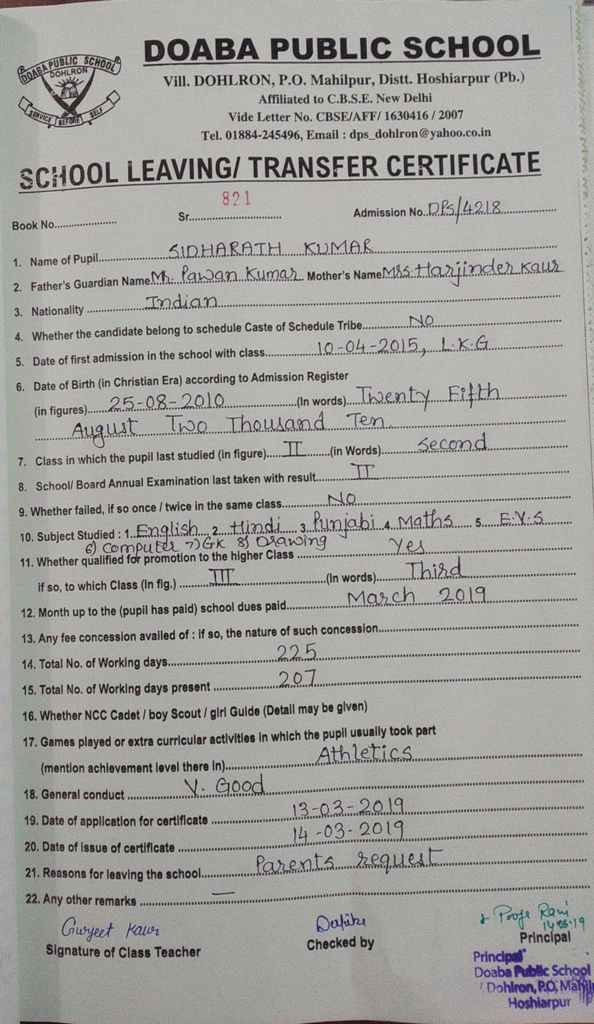 DOABA PUBLIC SCHOOL
DOHLRON
SERVICE BEFORE SELF
DOABA PUBLIC SCHOOL
Vill. DOHLRON, P.O. Mahilpur, Distt. Hoshiarpur (Pb.)
Affiliated to C.B.S.E. New Delhi
Vide Letter No. CBSE/AFF/ 1630416 / 2007
Tel. 01884-245496, Email : dps_dohlron@yahoo.co.in
SCHOOL LEAVING/ TRANSFER CERTIFICATE
Book No.................... Sr. 821 Admission No. DPS/4218
1. Name of Pupil SIDHARATH KUMAR
2. Father's Guardian Name Mr. Pawan Kumar Mother's Name Mrs Harjinder Kaur
3. Nationality Indian
4. Whether the candidate belong to schedule Caste of Schedule Tribe No
5. Date of first admission in the school with class 10-04-2015, L.K.G
6. Date of Birth (in Christian Era) according to Admission Register
(in figures) 25-08-2010 (In words) Twenty Fifth
August Two Thousand Ten
7. Class in which the pupil last studied (in figure) II (in Words) Second
8. School/ Board Annual Examination last taken with result II
9. Whether failed, if so once / twice in the same class No
10. Subject Studied : 1. English 2. Hindi 3. Punjabi 4. Maths 5. E.V.S
6) Computer 7) GK 8) Drawing
11. Whether qualified for promotion to the higher Class Yes
if so, to which Class (In fig.) III (In words) Third
12. Month up to the (pupil has paid) school dues paid March 2019
13. Any fee concession availed of : if so, the nature of such concession
14. Total No. of Working days 225
15. Total No. of Working days present 207
16. Whether NCC Cadet / boy Scout / girl Guide (Detail may be given)
17. Games played or extra curricular activities in which the pupil usually took part
(mention achievement level there in) Athletics
18. General conduct V. Good
19. Date of application for certificate 13-03-2019
20. Date of issue of certificate 14-03-2019
21. Reasons for leaving the school Parents request
22. Any other remarks —
Gurjeet Kaur
Signature of Class Teacher
Checked by
Principal
Principal
Doaba Public School
Dohlron, P.O. Mahil
Hoshiarpur